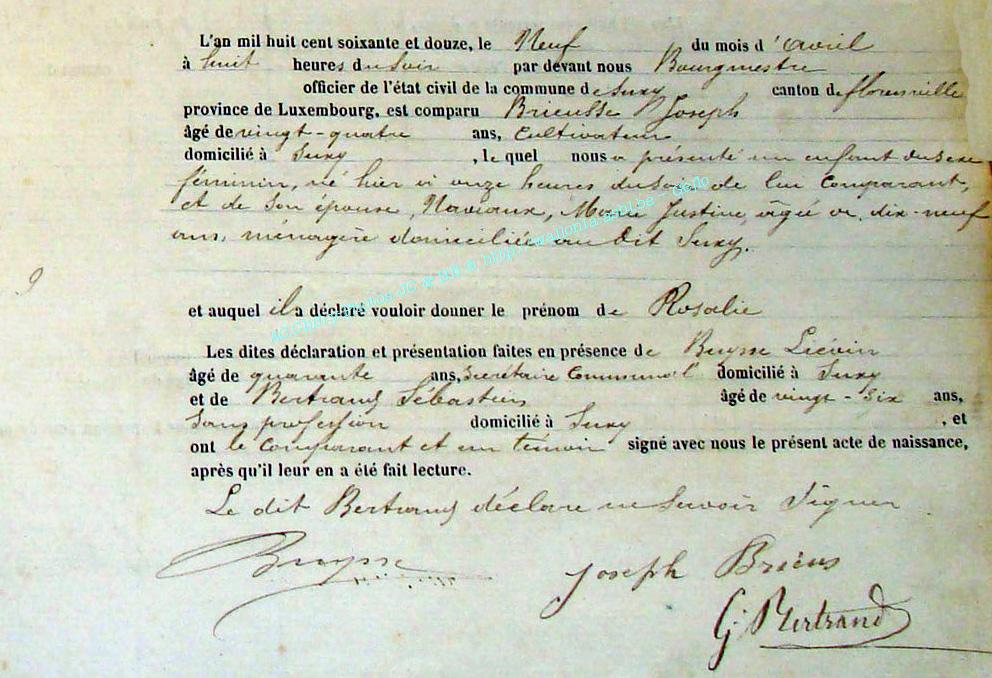 L'an mil huit cent soixante et douze, le Neuf du mois d'avril
à huit heures du soir par devant nous Bourgmestre
officier de l'état civil de la commune de Suxy canton de florenville
province de Luxembourg, est comparu Brieusse Joseph
âgé de vingt-quatre ans, Cultivateur
domicilié à Suxy, le quel nous a présenté un enfant du sexe
féminin, né hier à onze heures du soir, de lui Comparant,
et de son épouse, Naviaux, Marie Justine, âgée de dix-neuf
ans, ménagère domiciliée au dit Suxy.
9
et auquel il a déclaré vouloir donner le prénom de Rosalie
Les dites déclaration et présentation faites en présence de Buysse Liévin
âgé de quarante ans, Secrétaire Communal domicilié à Suxy
et de Bertrand Sébastien âgé de vingt-six ans,
sans profession domicilié à Suxy, et
ont le Comparant et un témoin signé avec nous le présent acte de naissance,
après qu'il leur en a été fait lecture.
Le dit Bertrand déclare ne savoir signer
Buysse
Joseph Brieus
G. Bertrand